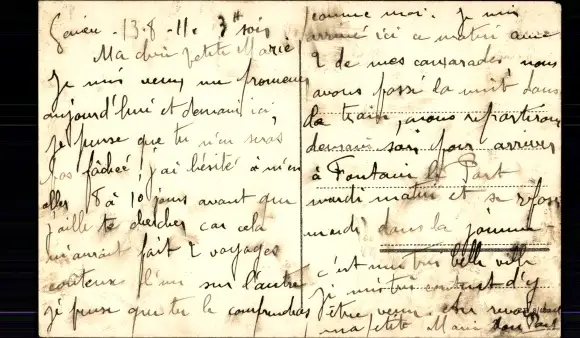 Genève - 13-8-11. 3h soir
Ma chère petite Marie
Je suis venu me promener
aujourd'hui et demain ici,
je pense que tu n'en seras
pas fâchée! j'ai hésité à m'en
aller 8 à 10 jours avant que
j'aille te chercher car cela
m'aurait fait 2 voyages
couteux l'un sur l'autre
je pense que tu le comprendras
comme moi. Je suis
arrivé ici ce matin avec
2 de mes camarades nous
avons passé la nuit dans
le train, nous repartirons
demain soir pour arriver
à Fontaine le Port
mardi matin et se reposer
mardi dans la journée
c'est une très belle ville
je suis très content d'y
être venu. Au revoir
ma petite Marie ton Paul